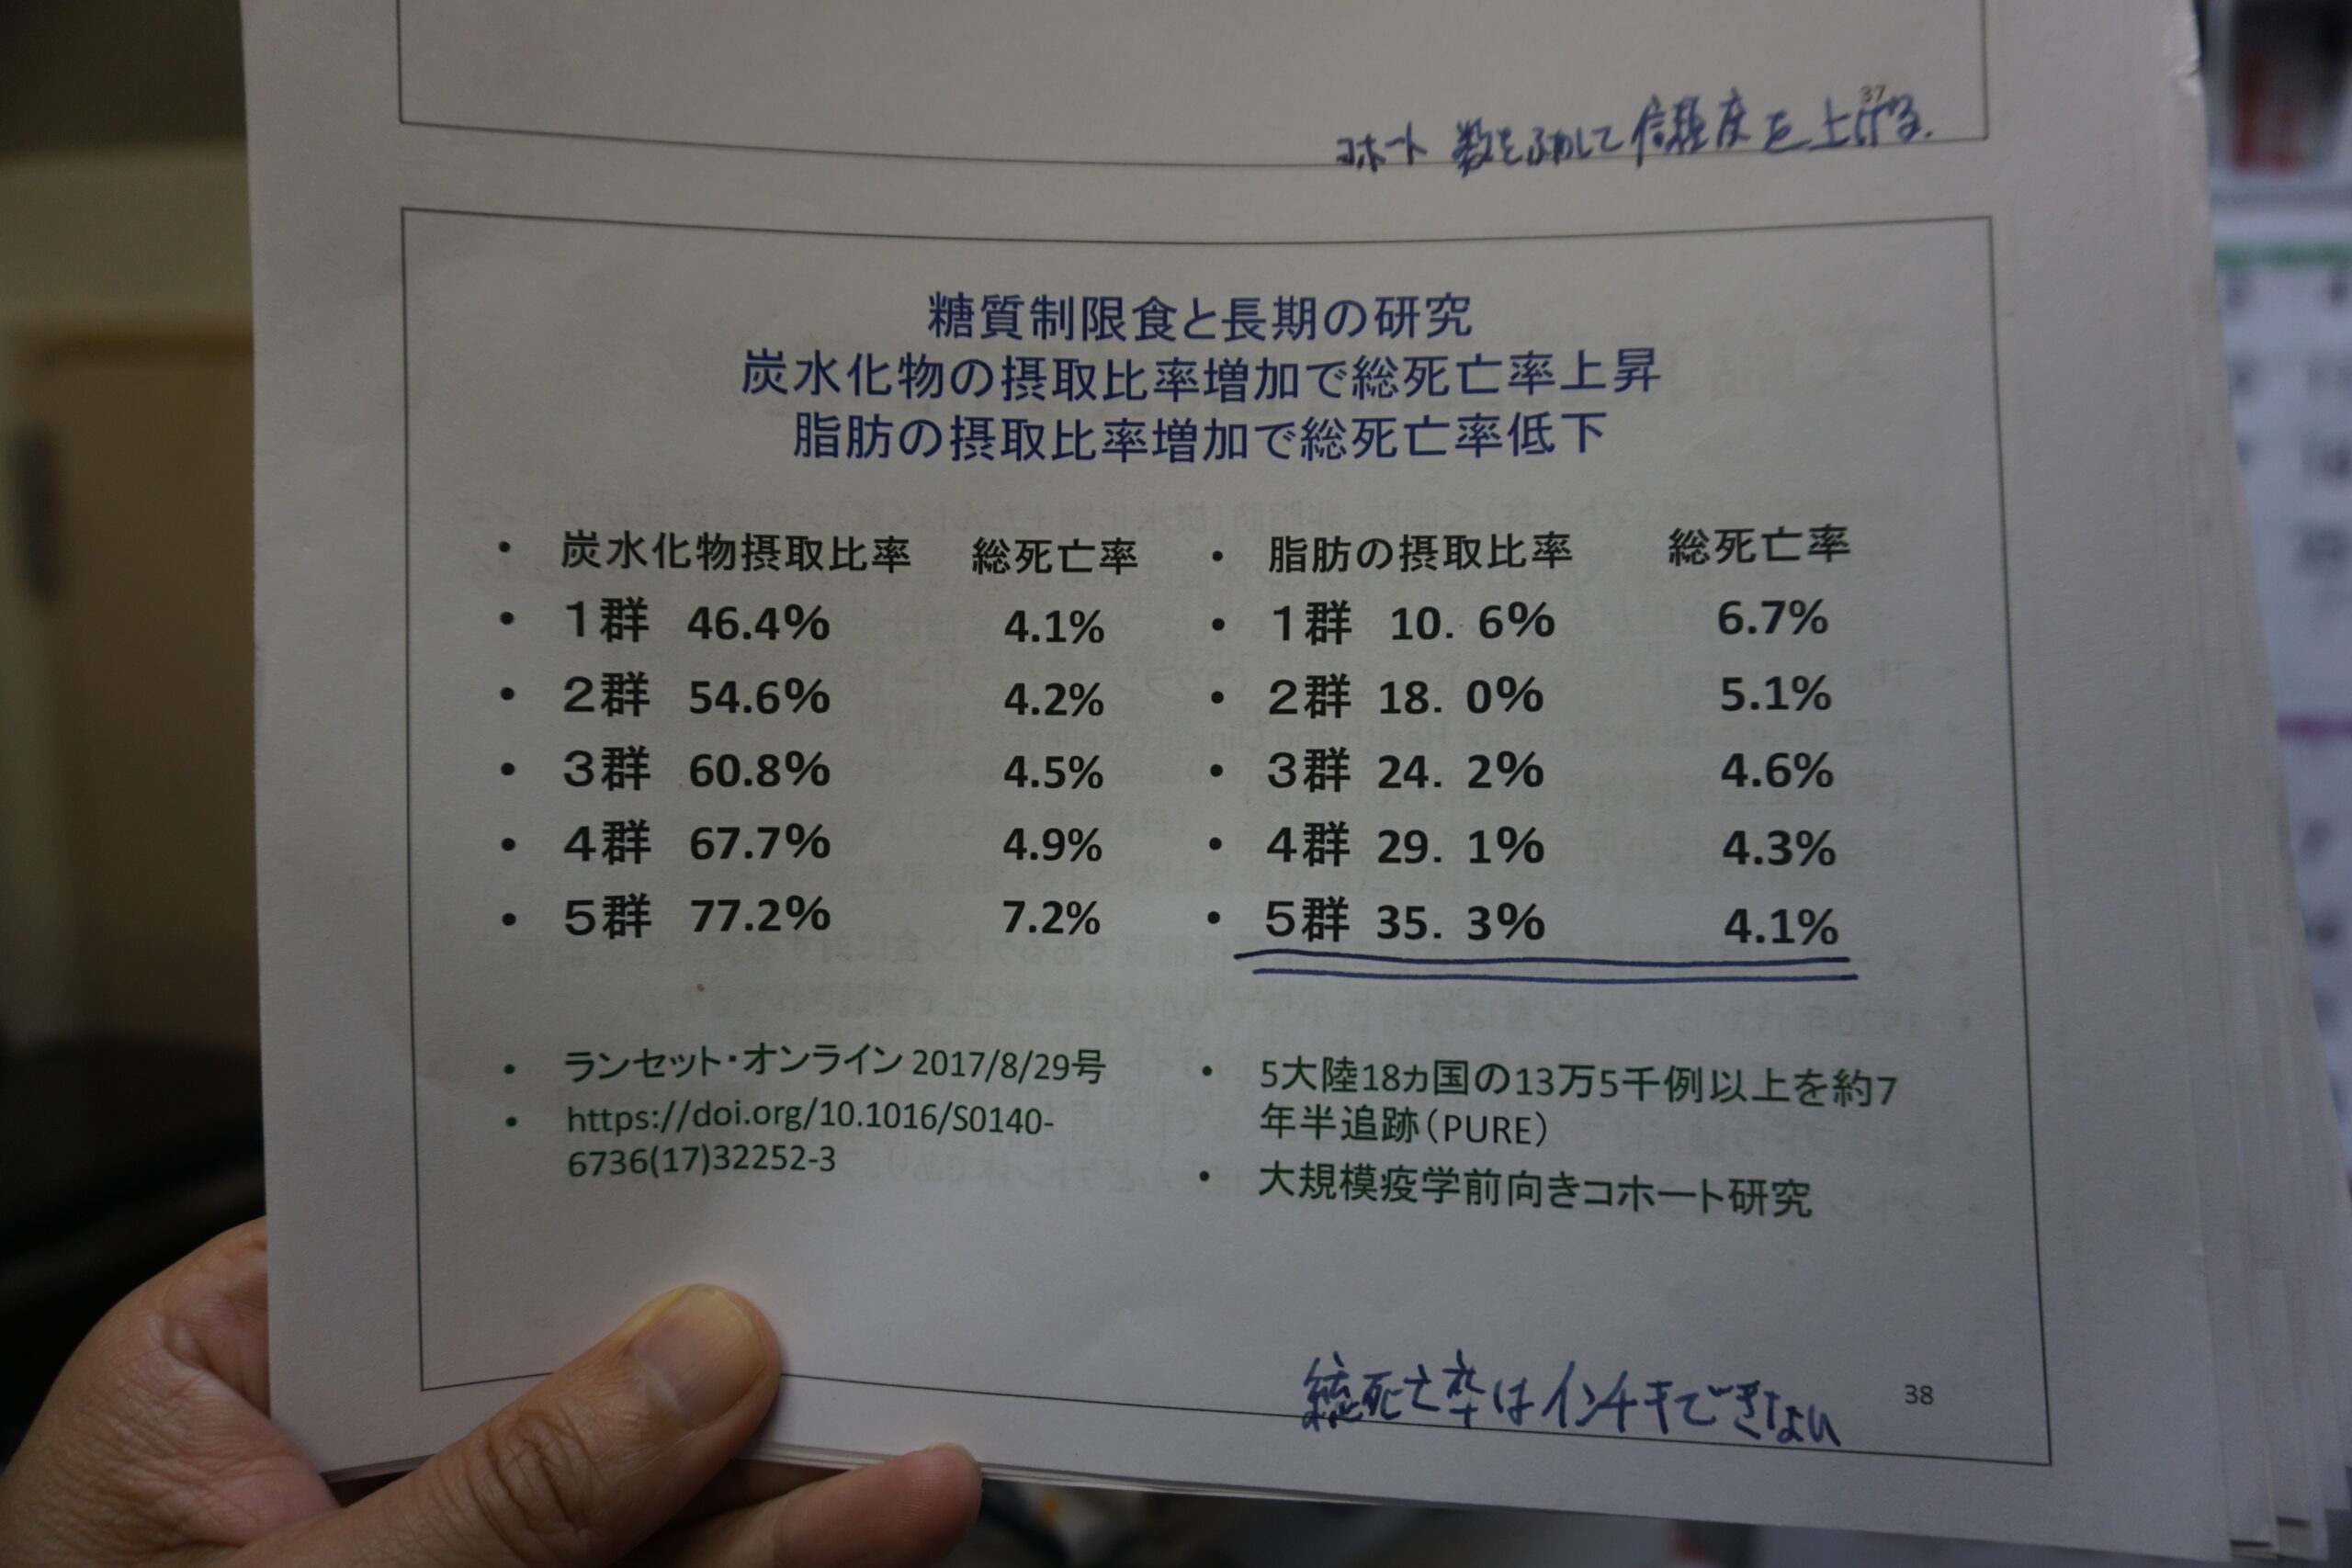 37
コホート 数をふやして信頼度を上げる.
糖質制限食と長期の研究
炭水化物の摂取比率増加で総死亡率上昇
脂肪の摂取比率増加で総死亡率低下
• 炭水化物摂取比率 総死亡率
• 1群 46.4% 4.1%
• 2群 54.6% 4.2%
• 3群 60.8% 4.5%
• 4群 67.7% 4.9%
• 5群 77.2% 7.2%
• 脂肪の摂取比率 総死亡率
• 1群 10. 6% 6.7%
• 2群 18. 0% 5.1%
• 3群 24. 2% 4.6%
• 4群 29. 1% 4.3%
• 5群 35. 3% 4.1%
• ランセット・オンライン 2017/8/29号
• https://doi.org/10.1016/S0140-
6736(17)32252-3
• 5大陸18ヵ国の13万5千例以上を約7
年半追跡（PURE）
• 大規模疫学前向きコホート研究
総死亡率はインチキできない
38